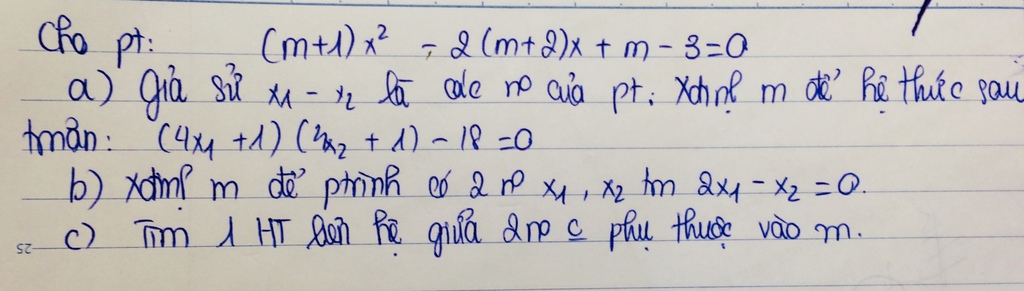 Cho pt: (m+1)x² - 2(m+2)x + m - 3 = 0
a) Giả sử x₁ - x₂ là các no của pt. Xđịnh m để hệ thức sau
tmãn: (4x₁ + 1)(4x₂ + 1) - 18 = 0
b) Xđịnh m để ptrình có 2 no x₁, x₂ tm 2x₁ - x₂ = 0.
c) Tìm 1 HT liên hệ giữa 2 no c phụ thuộc vào m.
25